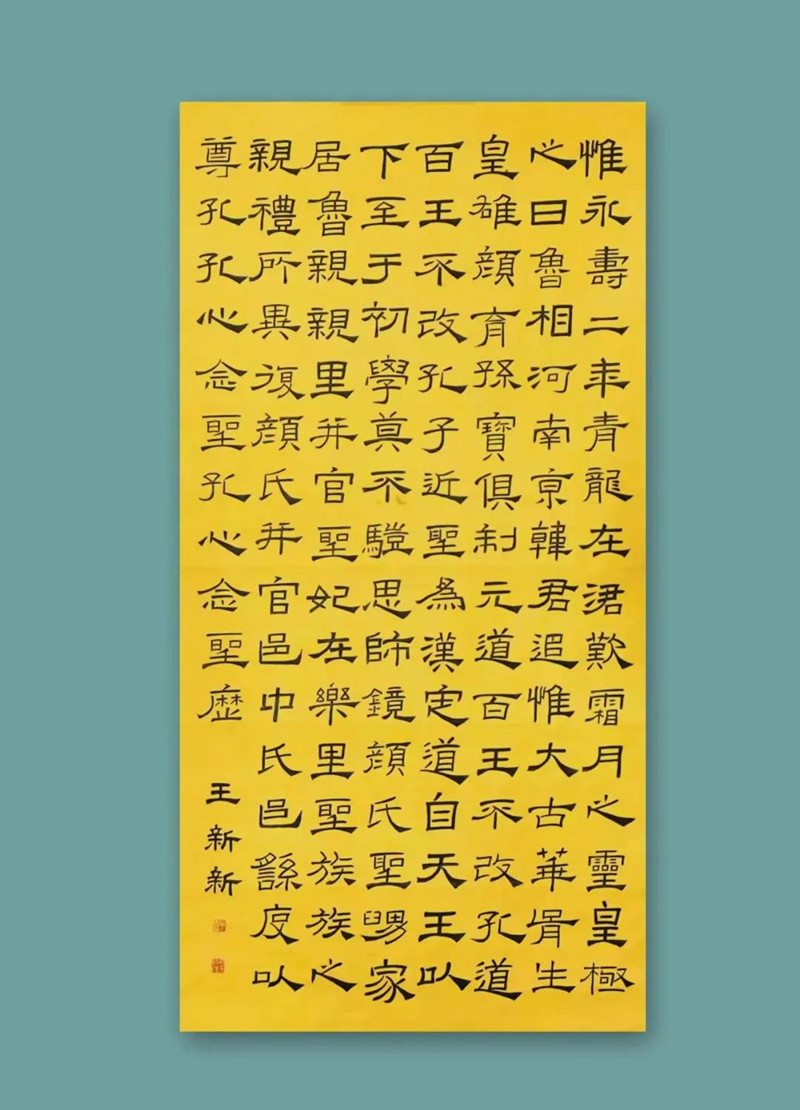 惟永壽二年青龍在涒歎霜月之靈皇極
之日魯相河南京韓君追惟大古華胥生
皇雄顏育孫寶俱制元道百王不改孔道
百王不改孔子近聖為漢定道自天王以
下至于初學莫不驥思師鏡顏氏聖舅家
居魯親親里并官聖妃在樂里聖族族之
親禮所異復顏氏并官邑中氏邑繇度以
尊孔孔心念聖孔心念聖歷
王新新